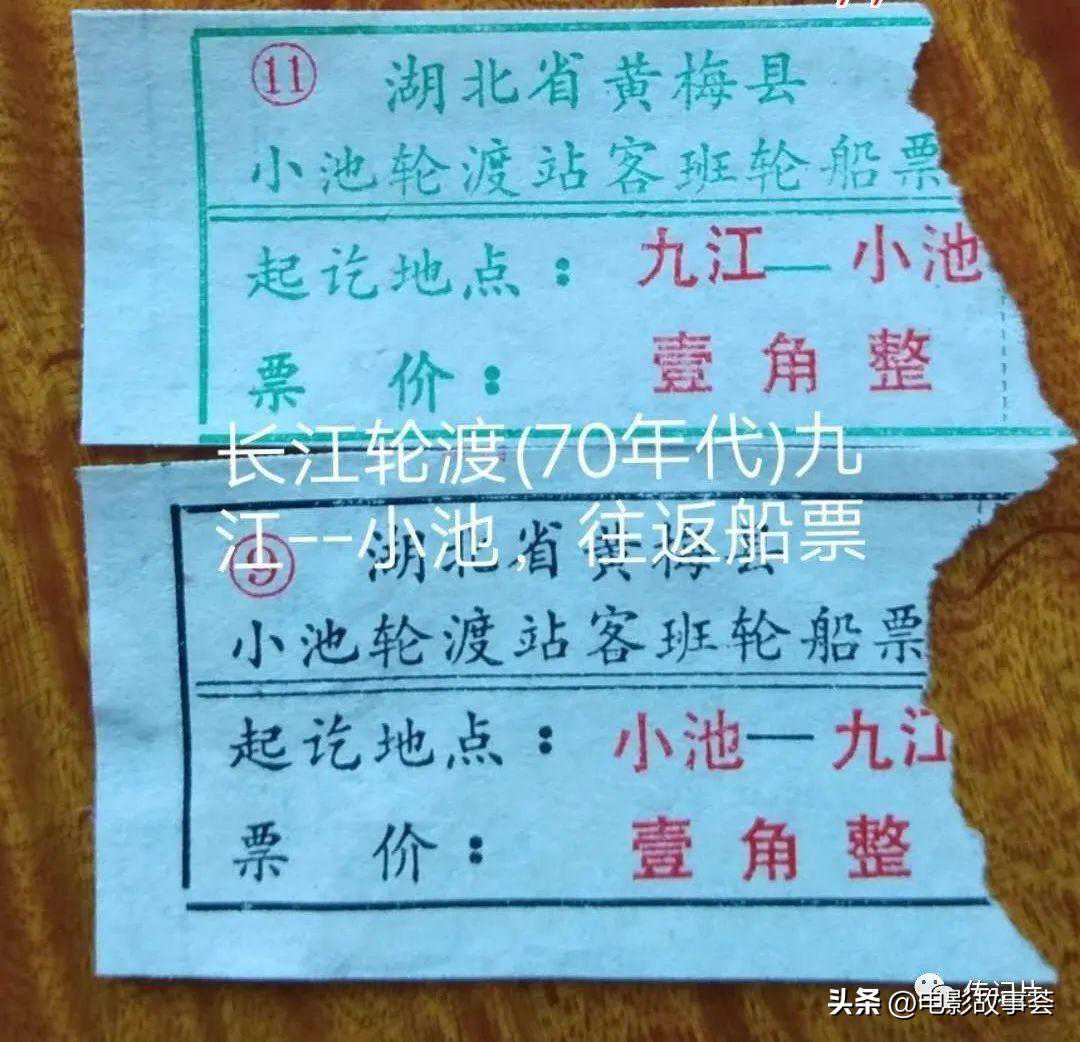 ⑪ 湖北省黄梅县
小池轮渡站客班轮船票
起讫地点：九江—小池
票价：壹角整
长江轮渡(70年代)九
江--小池，往返船票
⑨ 湖北省黄梅县
小池轮渡站客班轮船票
起讫地点：小池—九江
票价：壹角整
传记片
头条 @电影故事荟